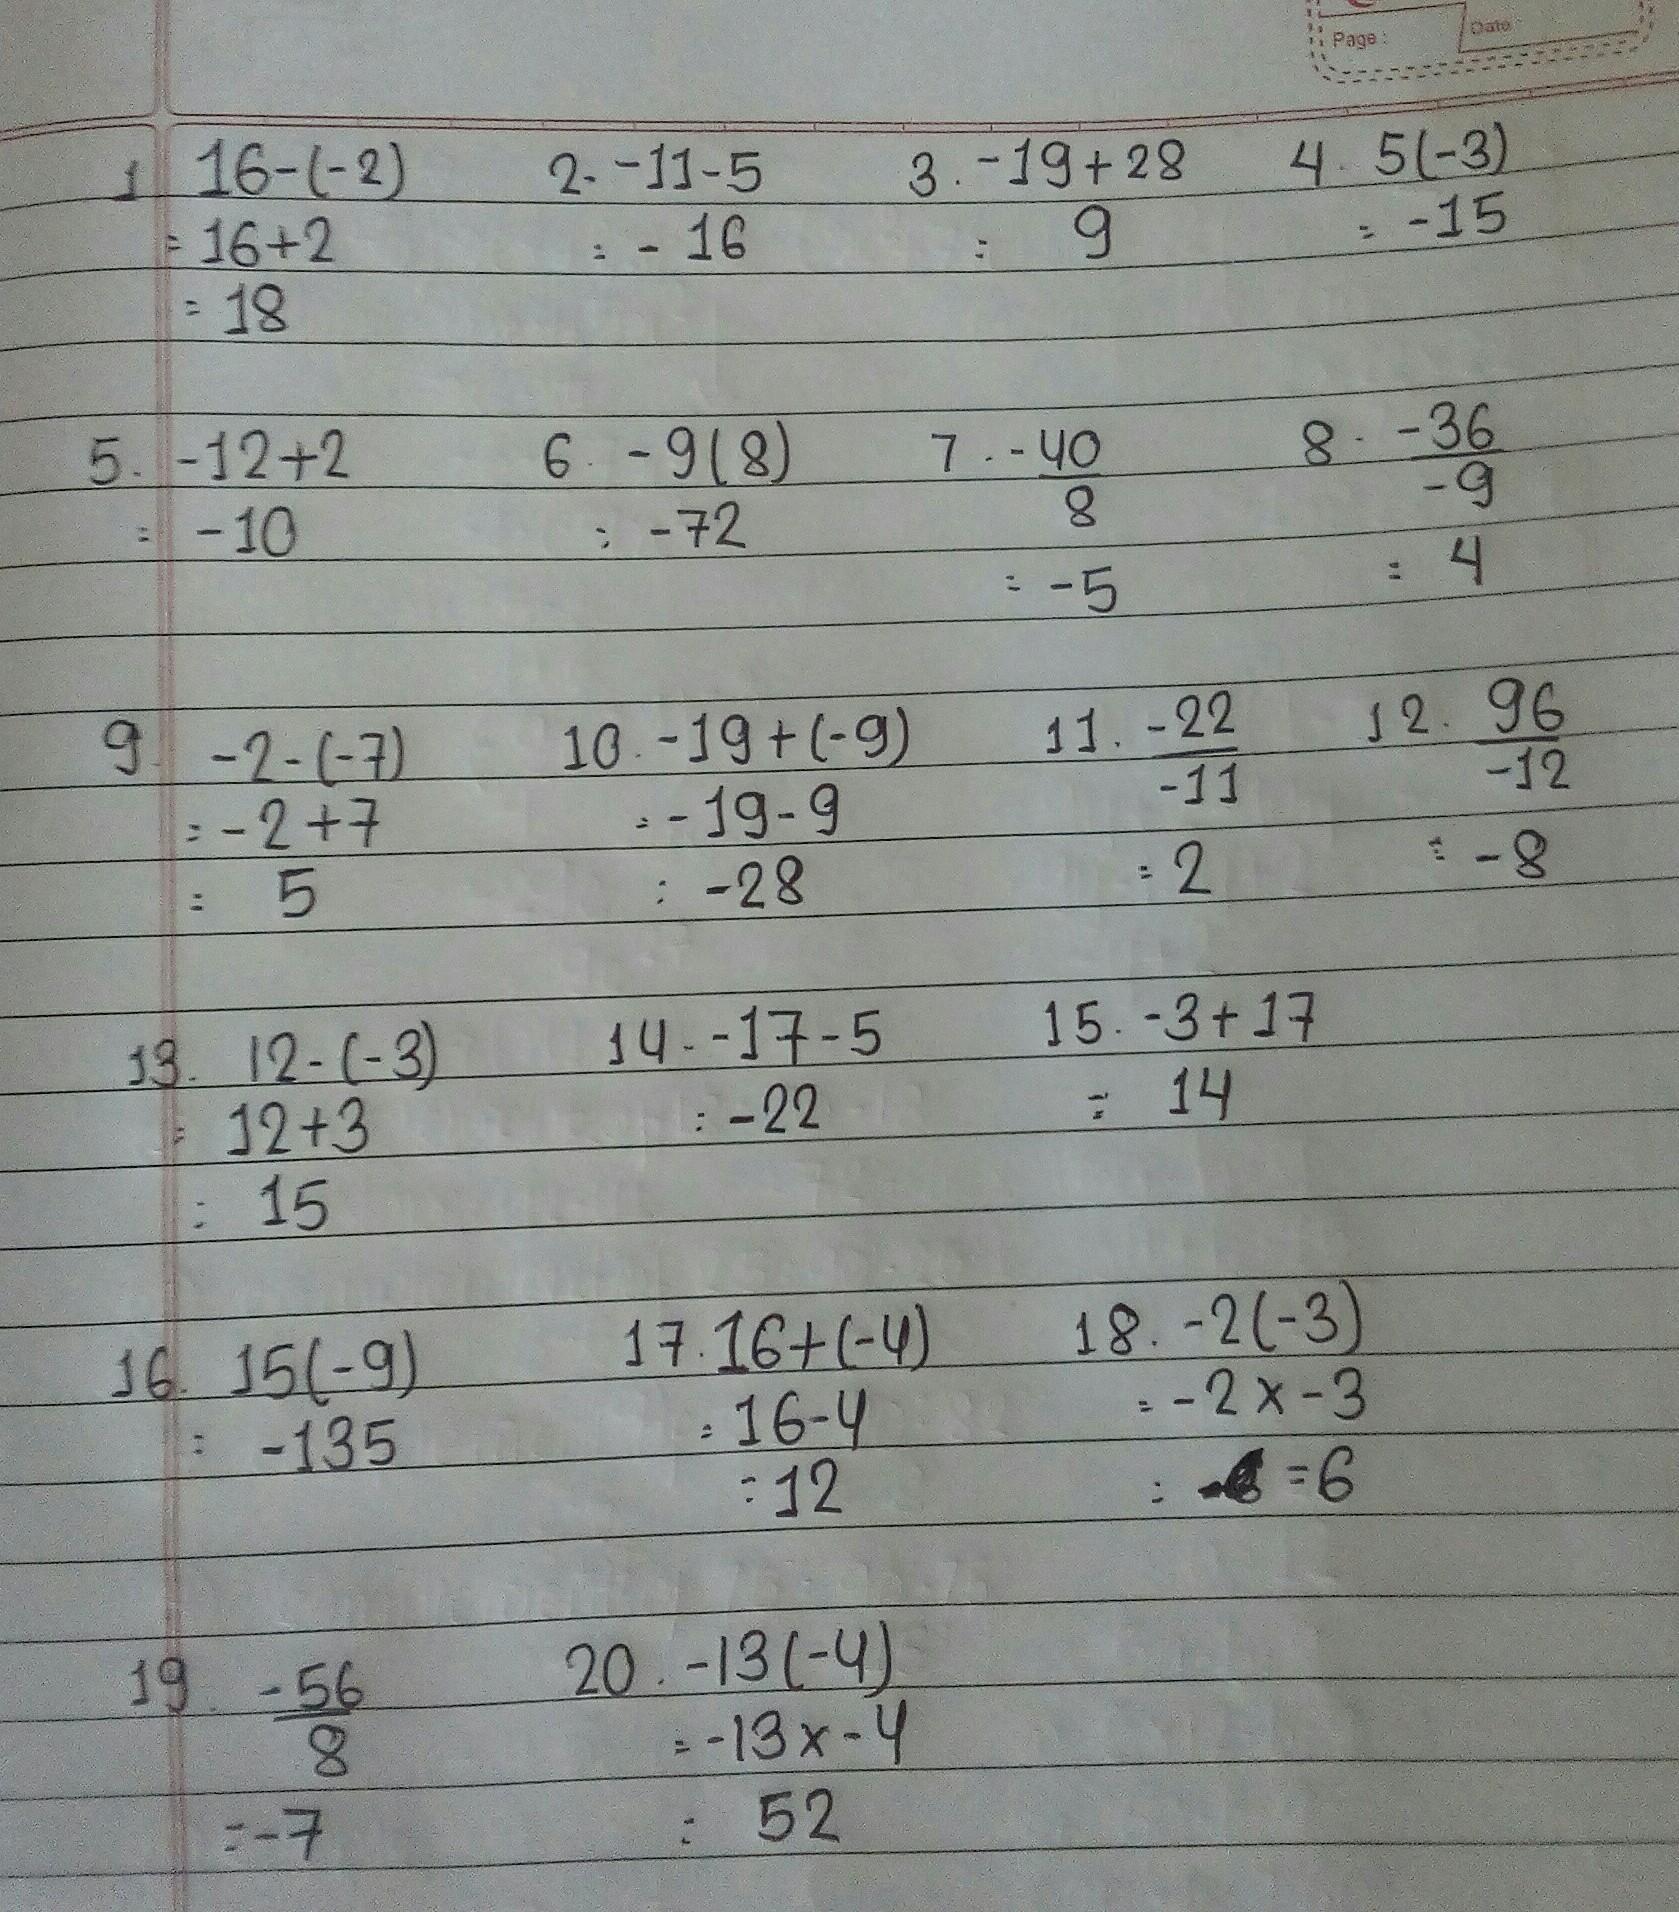 Page : Date :
1 16-(-2) 2. -11-5 3. -19+28 4. 5(-3)
= 16+2 = -16 = 9 = -15
= 18
5. -12+2 6. -9(8) 7. -40/8 8. -36/-9
= -10 = -72 = -5 = 4
9. -2-(-7) 10. -19+(-9) 11. -22/-11 12. 96/-12
= -2+7 = -19-9 = 2 = -8
= 5 = -28
13. 12-(-3) 14. -17-5 15. -3+17
= 12+3 = -22 = 14
= 15
16. 15(-9) 17. 16+(-4) 18. -2(-3)
= -135 = 16-4 = -2x-3
= 12 = =6
19. -56/8 20. -13(-4)
= -7 = -13x-4
= 52